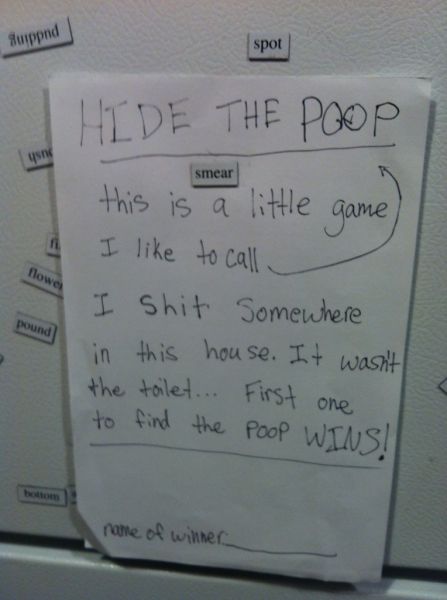 pudding
spot
HIDE THE POOP
smear
this is a little game
I like to call
I shit Somewhere
in this house. It wasn't
the toilet... First one
to find the POOP WINS!
flower
pound
bottom
name of winner